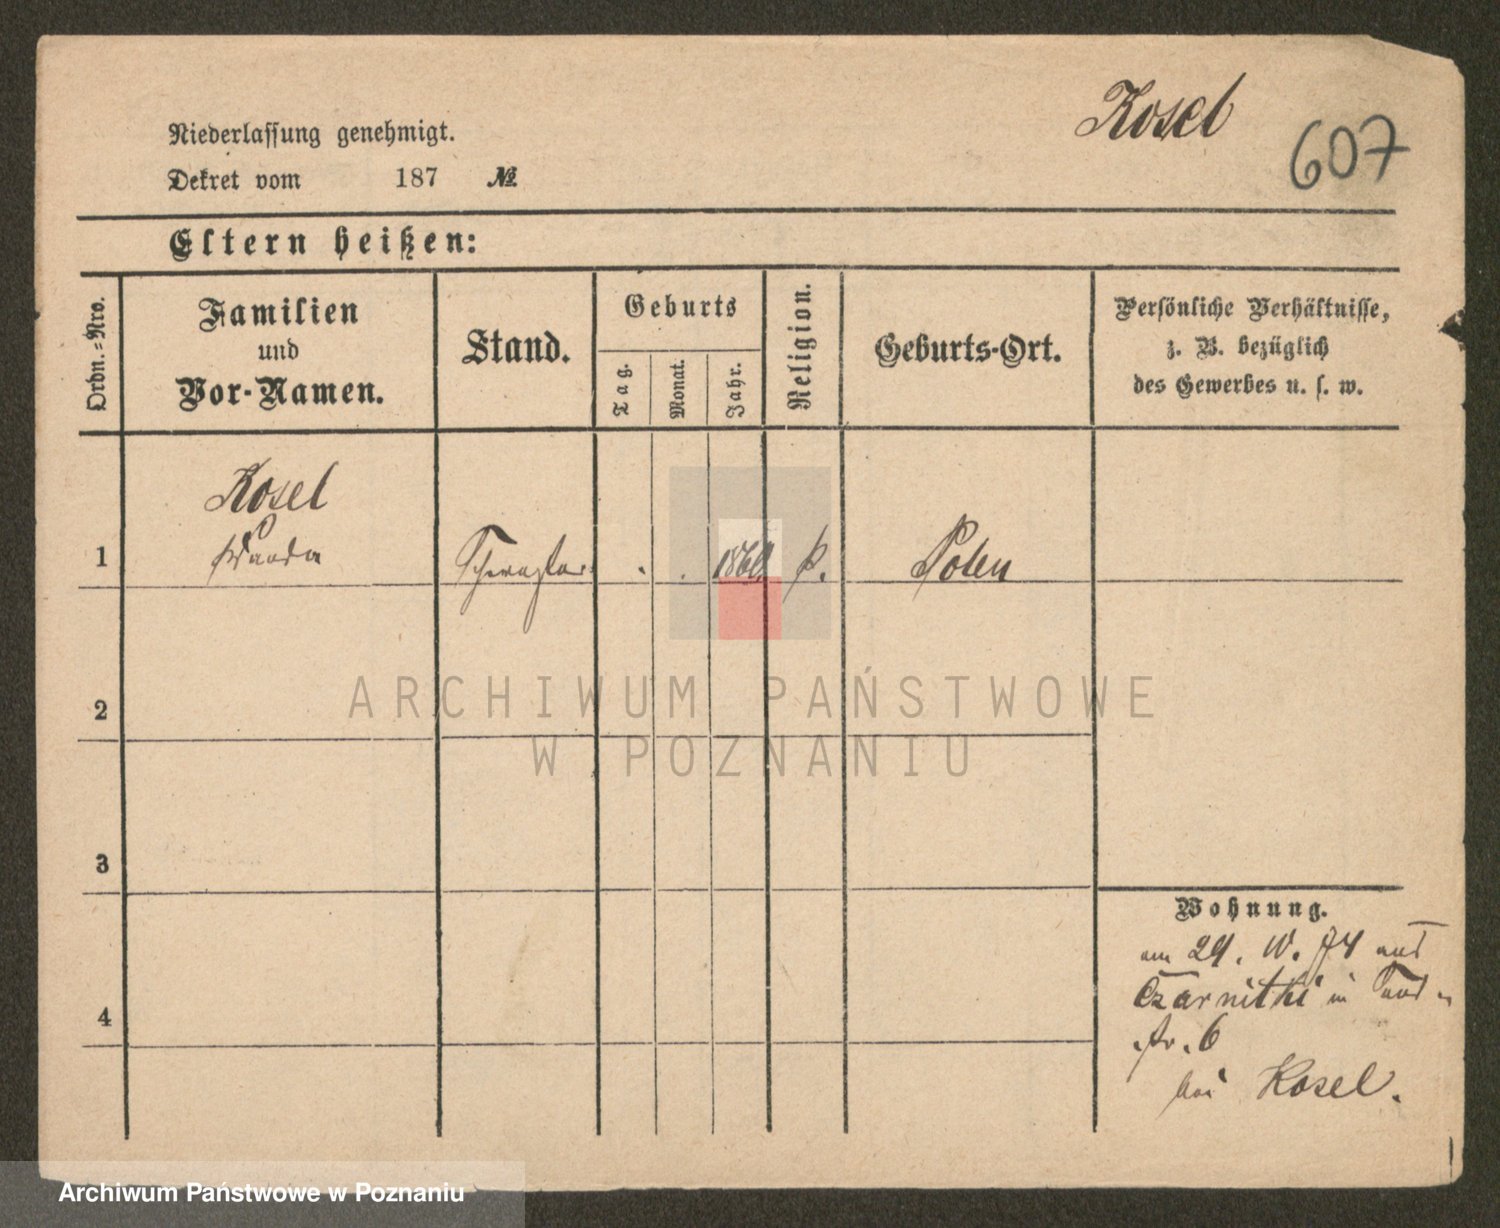 Kosel
607
Niederlassung genehmigt.
Dekret vom 187 №
Eltern heißen:
Ordn.-Nro.
Familien
und
Vor-Namen.
Stand.
Geburts
Tag.
Monat.
Jahr.
Religion.
Geburts-Ort.
Persönliche Verhältnisse,
z. B. bezüglich
des Gewerbes u. s. w.
Kosel
Wanda
1 . . p. Polen
2
3
4
Wohnung.
am 29. 10. 74 aus
Czarnitki in
str. 6
bei Kosel.
ARCHIWUM PAŃSTWOWE
W POZNANIU
Archiwum Państwowe w Poznaniu